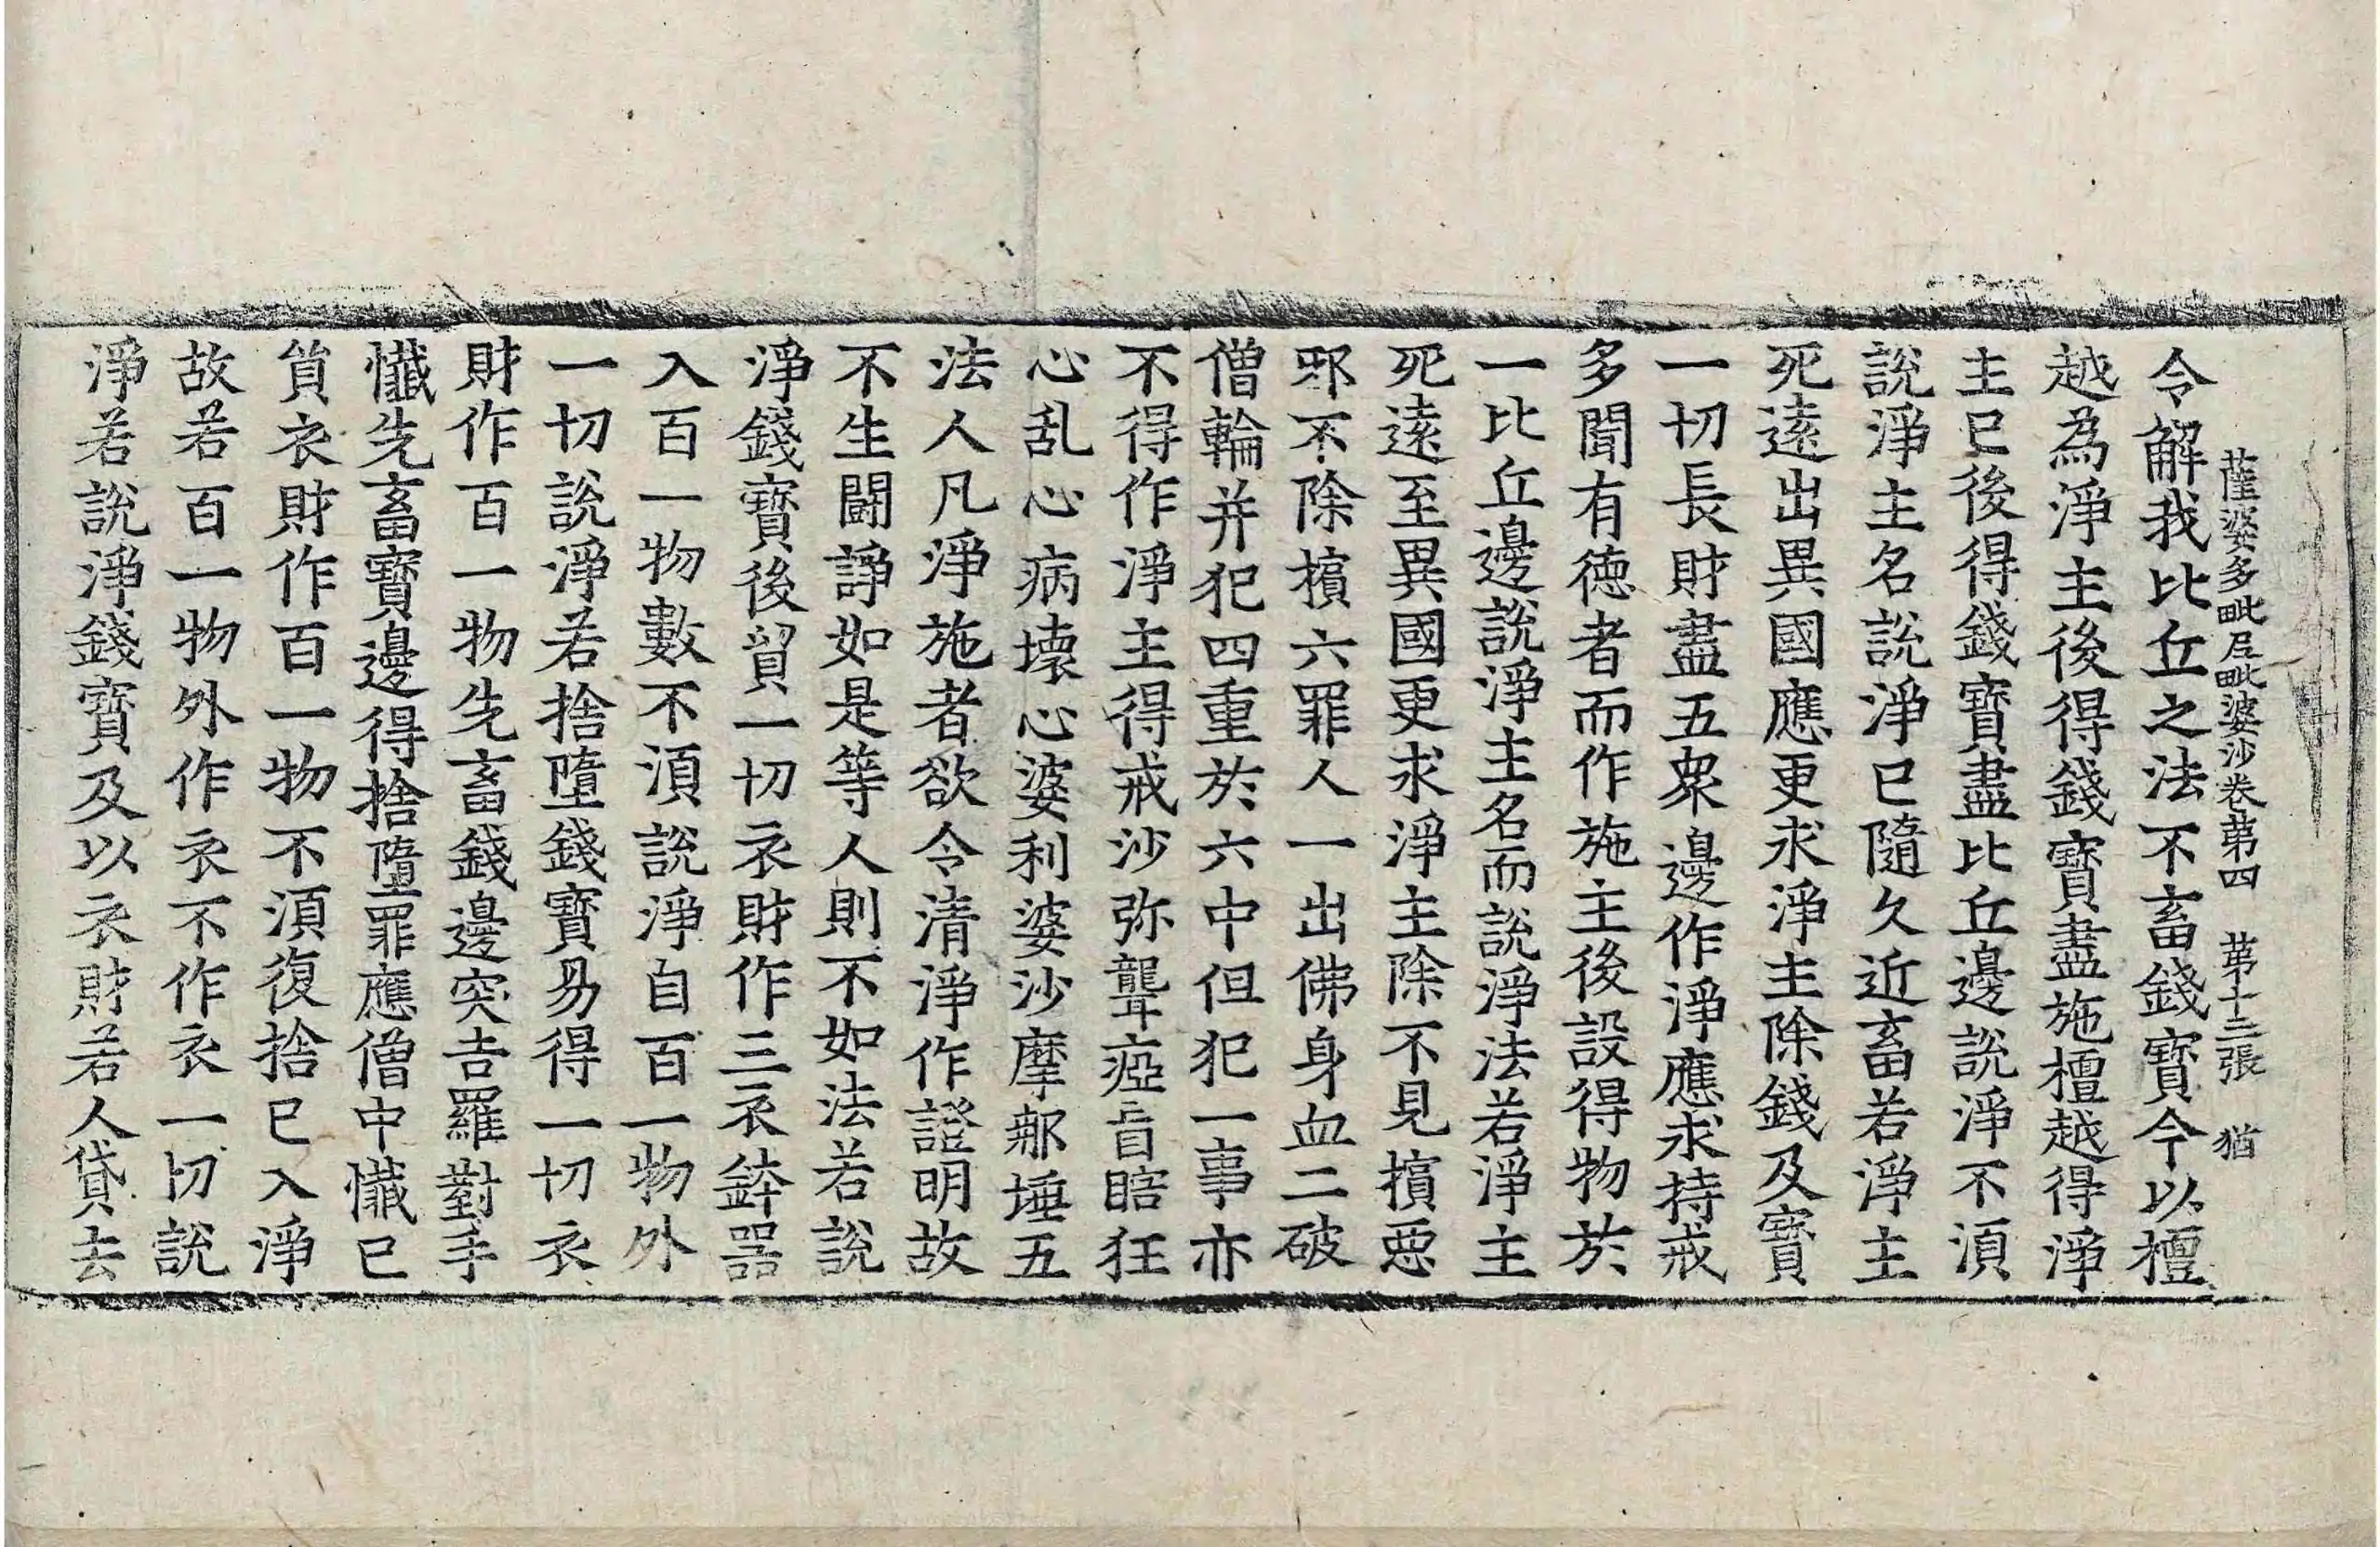 薩婆多毗尼毗婆沙卷第四　第十三張　猶
令解我比丘之法不畜錢寶今以檀
越為淨主後得錢寶盡施檀越得淨
主已後得錢寶盡比丘邊說淨不須
說淨主名說淨已隨久近畜若淨主
死遠出異國應更求淨主除錢及寶
一切長財盡五衆邊作淨應求持戒
多聞有德者而作施主後設得物於
一比丘邊說淨主名而說淨法若淨主
死遠至異國更求淨主除不見擯惡
邪不除擯六罪人一出佛身血二破
僧輪并犯四重於六中但犯一事亦
不得作淨主得戒沙弥聾瘂盲瞎狂
心乱心病壞心婆利婆沙摩那埵五
法人凡淨施者欲令清淨作證明故
不生鬪諍如是等人則不如法若說
淨錢寶後貿一切衣財作三衣鉢器
入百一物數不湏說淨自百一物外
一切說淨若捨墮錢寶易得一切衣
財作百一物先畜錢邊突吉羅對手
懺先畜寶邊得捨墮罪應僧中懺已
貿衣財作百一物不湏復捨已入淨
故若百一物外作衣不作衣一切說
淨若說淨錢寶及以衣財若人貸去